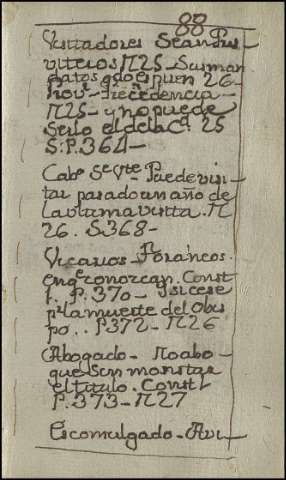 88
Visitadores Sean Pres
viteros N25 - Sus man
datos
hon.r Precedencia -
N25 - y no puede
Serlo el de la C.ª 25
S: P. 364 -
Cab.º S.e V.te Puede visi
tar pasado un año de
la ultima visita. N
26. S 368 -
Vicarios - Foraneos.
en q.e conozcan. Const
1. P. 370 - Si cese
p.r la muerte del obis
po.. P 372 - N 26
Abogado - No abo
gue Sin mostrar
el titulo. Const 1
P. 373 - N27
Escomulgado - Avi -